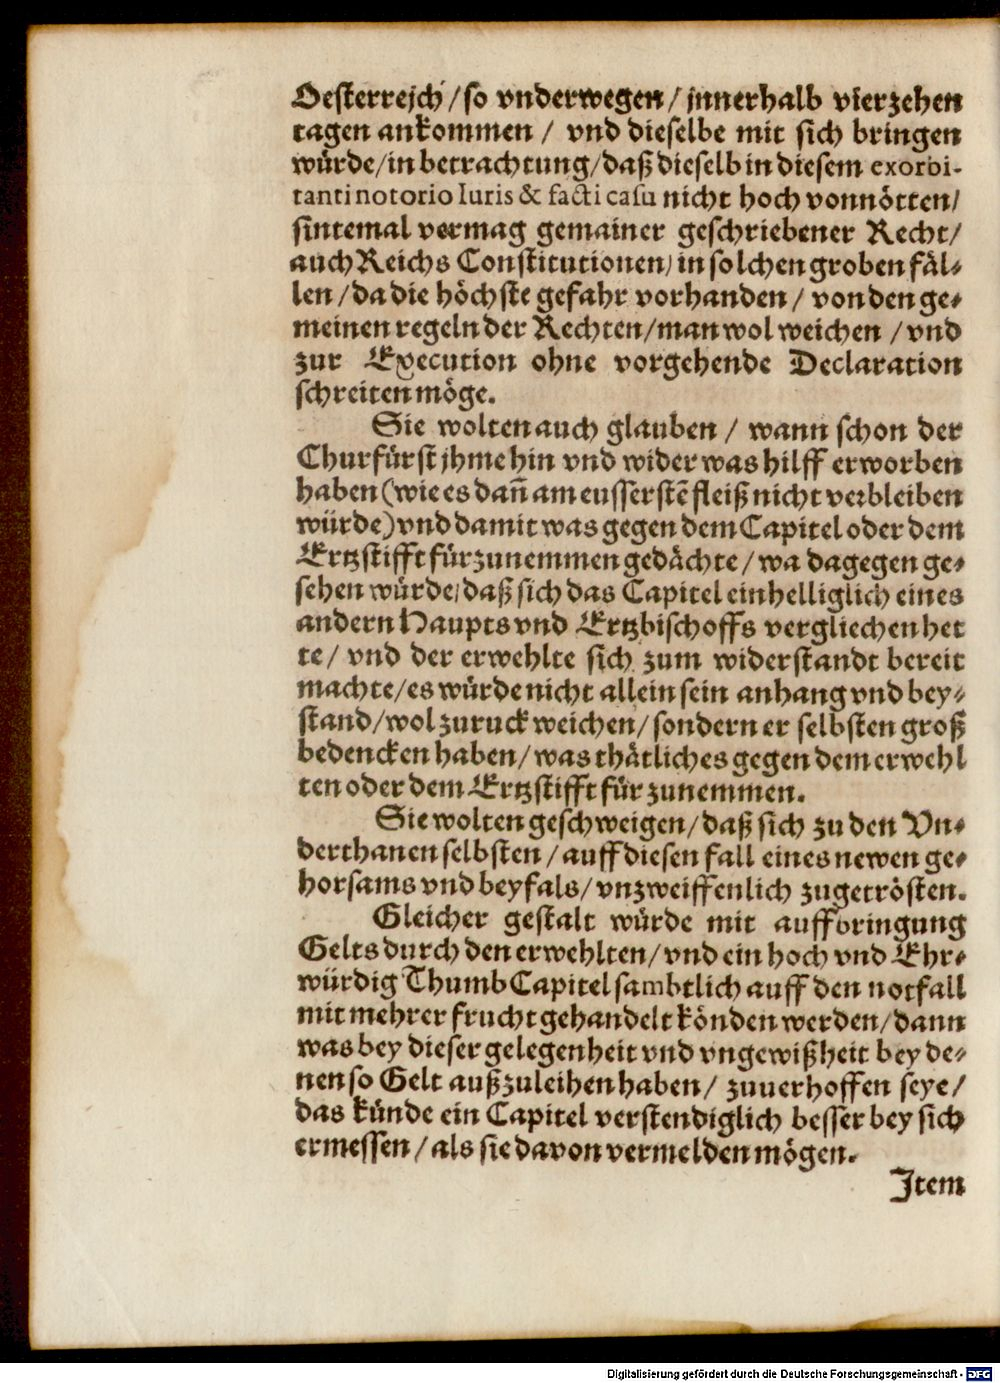 Oesterreich / so vnderwegen / jnnerhalb vierzehen
tagen ankommen / vnd dieselbe mit sich bringen
würde / in betrachtung / daß dieselb in diesem exorbi-
tanti notorio Iuris & facti casu nicht hoch vonnötten /
sintemal vermag gemainer geschriebener Recht /
auch Reichs Constitutionen / in solchen groben fäl-
len / da die höchste gefahr vorhanden / von den ge-
meinen regeln der Rechten / man wol weichen / vnd
zur Execution ohne vorgehende Declaration
schreiten möge.
Sie wolten auch glauben / wann schon der
Churfürst jhme hin vnd wider was hilff erworben
haben (wie es dañ am eusserstẽ fleiß nicht verbleiben
würde) vnd damit was gegen dem Capitel oder dem
Ertzstifft fürzunemmen gedächte / wa dagegen ge-
sehen würde / daß sich das Capitel einhelliglich eines
andern Haupts vnd Ertzbischoffs vergliechen het
te / vnd der erwehlte sich zum widerstandt bereit
machte / es würde nicht allein sein anhang vnd bey-
stand / wol zuruck weichen / sondern er selbsten groß
bedencken haben / was thätliches gegen dem erwehl
ten oder dem Ertzstifft für zunemmen.
Sie wolten geschweigen / daß sich zu den Vn-
derthanen selbsten / auff diesen fall eines newen ge-
horsams vnd beyfals / vnzweiffenlich zugetrösten.
Gleicher gestalt würde mit auffbringung
Gelts durch den erwehlten / vnd ein hoch vnd Ehr-
würdig Thumb Capitel sambtlich auff den notfall
mit mehrer frucht gehandelt könden werden / dann
was bey dieser gelegenheit vnd vngewißheit bey de-
nen so Gelt außzuleihen haben / zuuerhoffen seye /
das künde ein Capitel verstendiglich besser bey sich
ermessen / als sie davon vermelden mögen.
Item
Digitalisierung gefördert durch die Deutsche Forschungsgemeinschaft - DFG